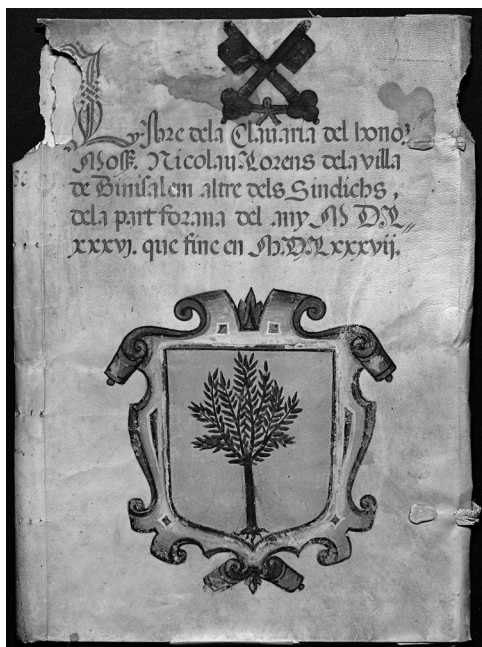 Lybre dela Clauaria del hono.r
Moss. Nicolau Lorens dela villa
de Binisalem altre dels Sindichs,
dela part forana del any M D.L„
xxxvj. que fine en M.D.Lxxxvij.